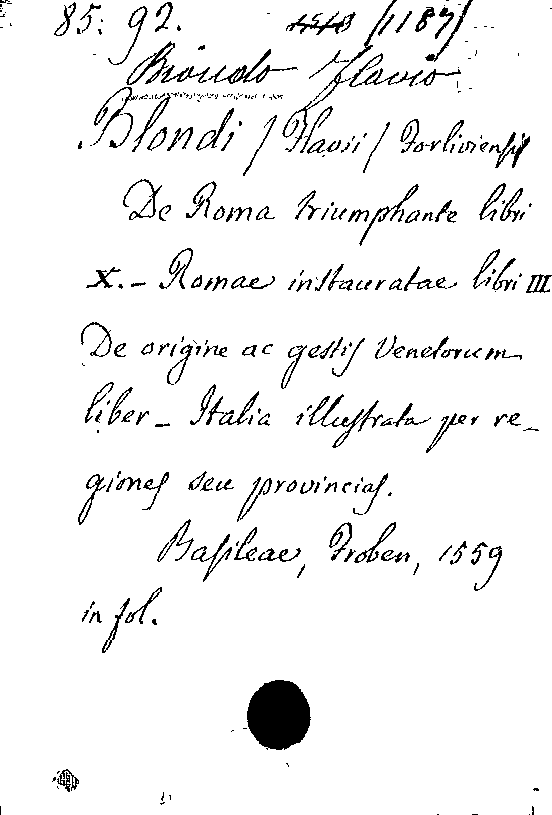 85: 92. 1513 /1187/
Biondo Flavio
Blondi / Flavii / Forliviensis
De Roma triumphante libri
X. – Romae instauratae libri III
De origine ac gestis Venetorum
liber – Italia illustrata per re-
giones seu provincias.
Basileae, Froben, 1559
in fol.